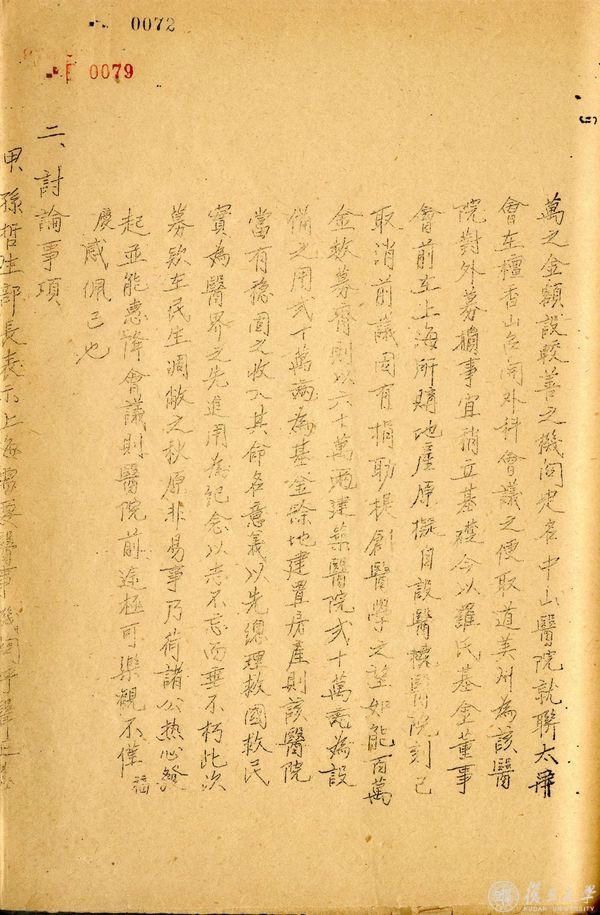 0072
0079
萬之金額設較善之機關定名中山醫院就聯太平
會在檀香山召開外科會議之便取道美洲為該醫
院對外募損事宜稍立基礎今以羅氏基金董事
會前在上海所購地產原擬自設醫校醫院刻已
取消前議因有捐助提創醫學之望如能百萬
金欵募齊則以六十萬兩建築醫院弍十萬兩為設
備之用弍十萬兩為基金餘地建置房產則該醫院
當有穩固之收入其命名意義以先總理救國救民
實為醫界之先進用為紀念以志不忘而垂不朽此次
募欵在民生凋敝之秋原非易事乃荷諸公熱心發
起並能惠降會議則醫院前途極可樂觀不僅福
慶感佩已也
二、討論事項
甲、孫哲生部長表示上海需要醫事機關
復旦大學
FUDAN UNIVERSITY